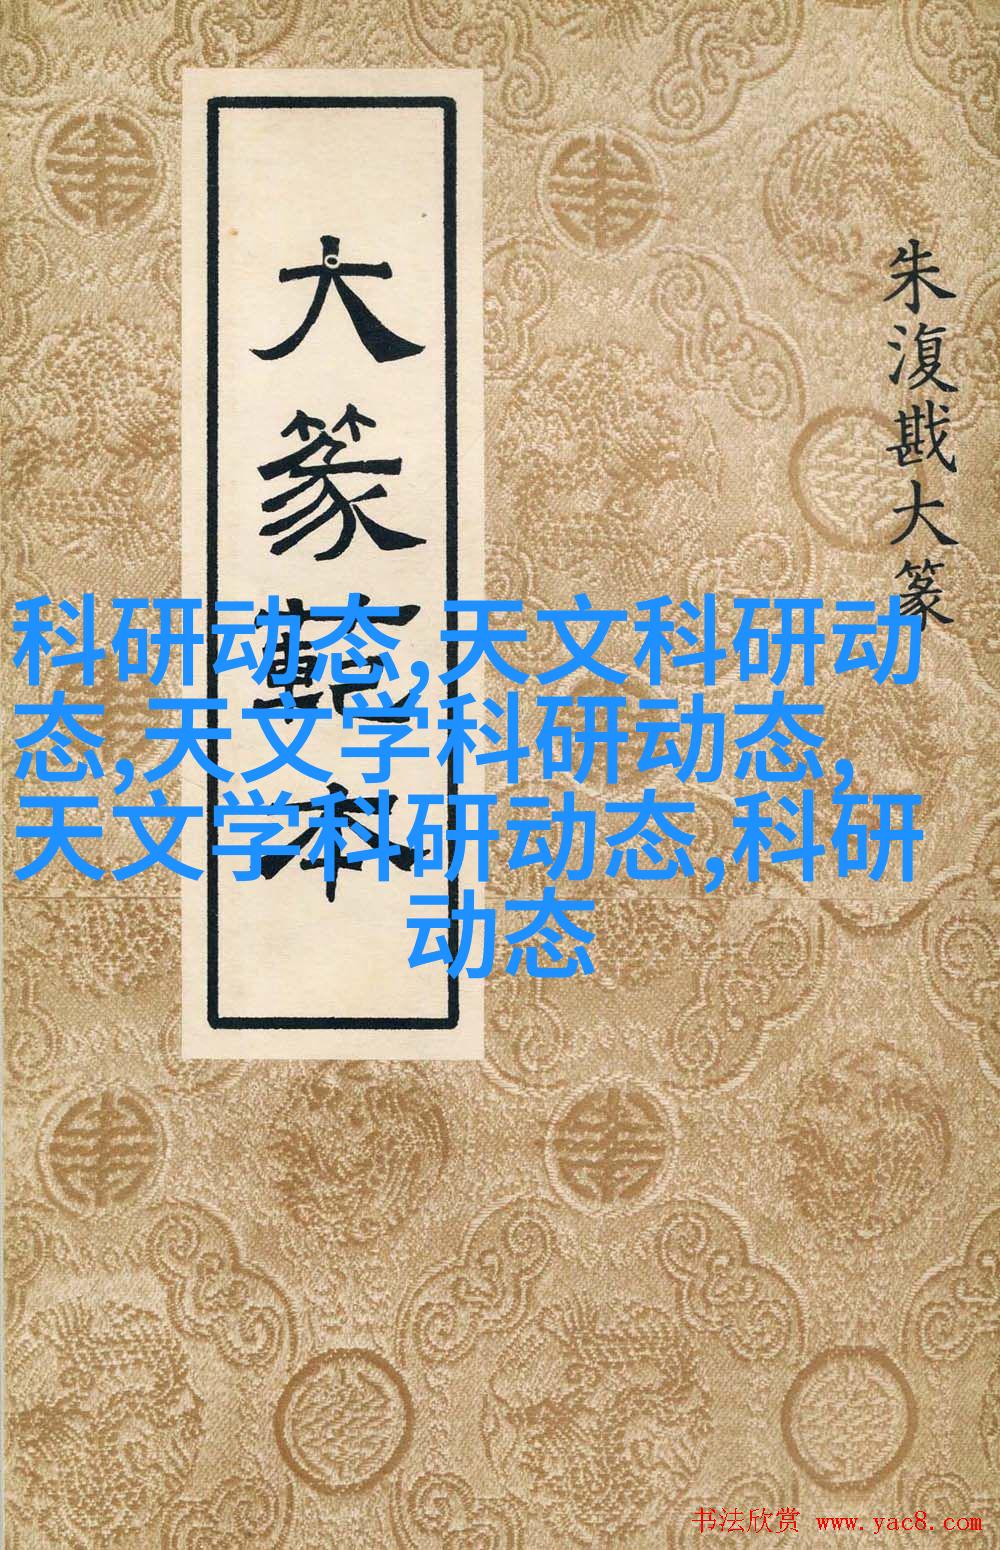 朱復戡大篆
大篆範本
科研动态,天文科研动
态,天文学科研动态,
天文学科研动态,科研
动态
书法欣赏 www.yac8.com